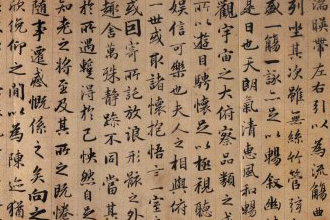 湍暎帶左右引以為流觴
列坐其次雖無絲竹管弦
盛一觴一詠亦足以暢敘幽
是日也天朗氣清惠風和暢
觀宇宙之大俯察品類之
所以遊目騁懷足以極視聽
娛信可樂也夫人之相與俯
一世或取諸懷抱悟言一室
或因寄所託放浪形骸之外
趣舍萬殊靜躁不同當其
於所遇蹔得於己怏然自
知老之將至及其所之既惓
隨事遷感慨係之矣向之
欣俛仰之閒以為陳迹猶